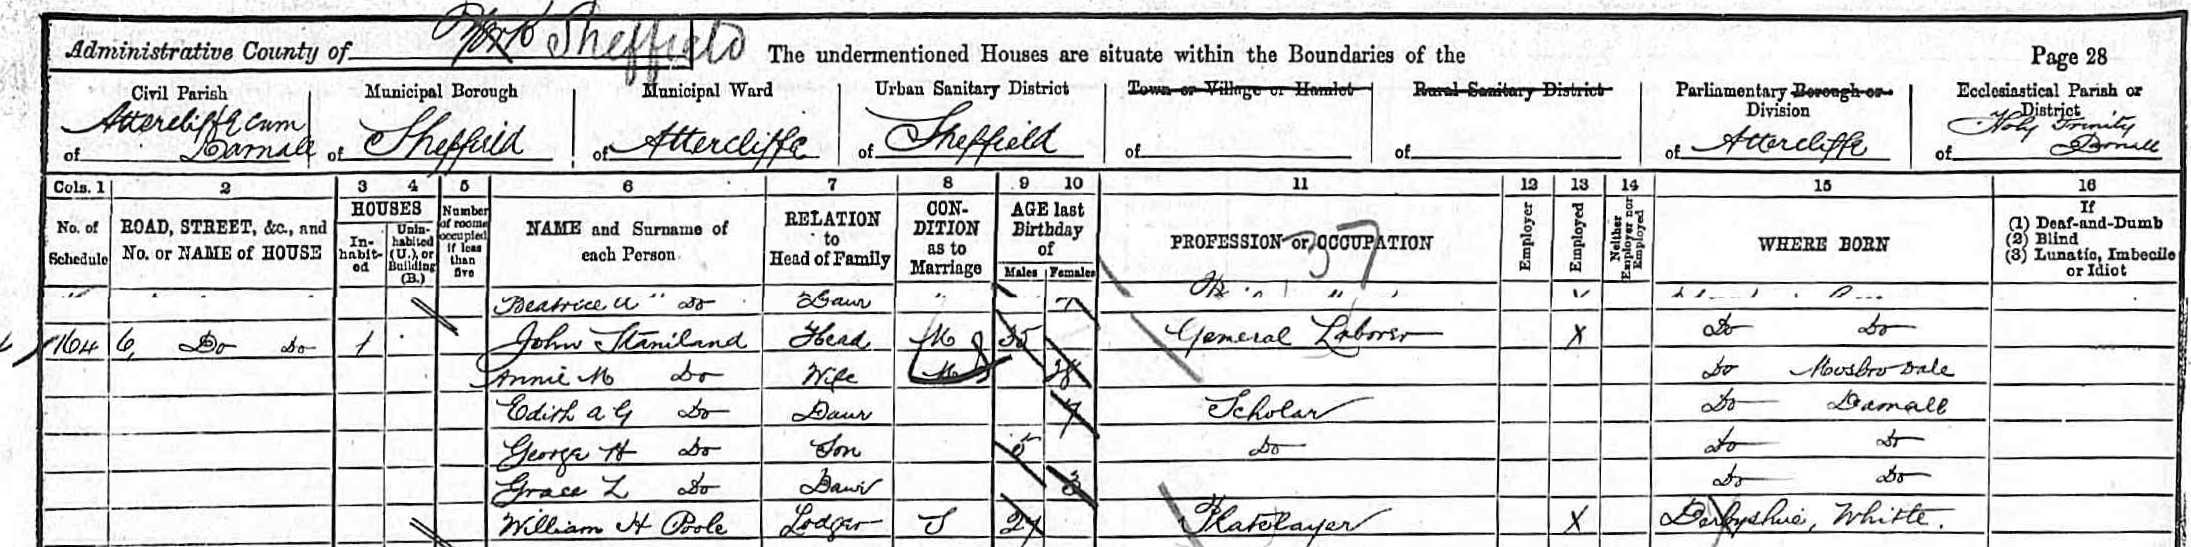 Administrative County of York Sheffield The undermentioned Houses are situate within the Boundaries of the Page 28
Civil Parish Municipal Borough Municipal Ward Urban Sanitary District Town or Village or Hamlet Rural Sanitary District Parliamentary Borough or Division Ecclesiastical Parish or District
of Attercliffe cum Darnall of Sheffield of Attercliffe of Sheffield of of of Attercliffe of Holy Trinity Darnall
Cols. 1 2 3 4 5 6 7 8 9 10 11 12 13 14 15 16
No. of Schedule ROAD, STREET, &c., and No. or NAME of HOUSE HOUSES In-habit-ed Unin-habited (U.), or Building (B.) Number of rooms occupied if less than five NAME and Surname of each Person RELATION to Head of Family CON-DITION as to Marriage AGE last Birthday of Males Females PROFESSION or OCCUPATION 37 Employer Employed Neither Employer nor Employed WHERE BORN If (1) Deaf-and-Dumb (2) Blind (3) Lunatic, Imbecile or Idiot
Beatrice A " Do Daur " 7
164 6, Do Do 1 John Staniland Head M 35 General Laborer X Do Do
Annie M Do Wife M 28 Do Mosbro Dale
Edith A G Do Daur 7 Scholar Do Darnall
George H Do Son 5 Do Do Do
Grace L Do Daur 3 Do Do
William H Poole Lodger S 27 Platelayer X Derbyshire, Whitte.